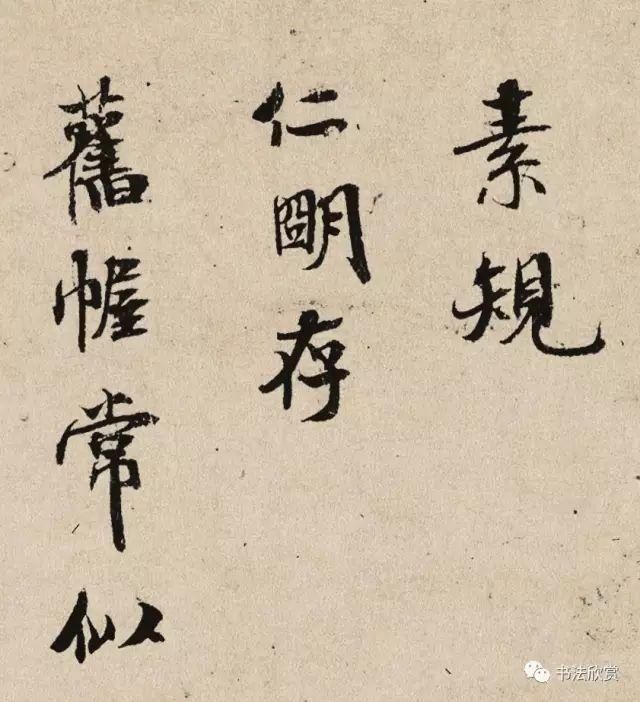 素規
仁朙存
舊幄常似
书法欣赏